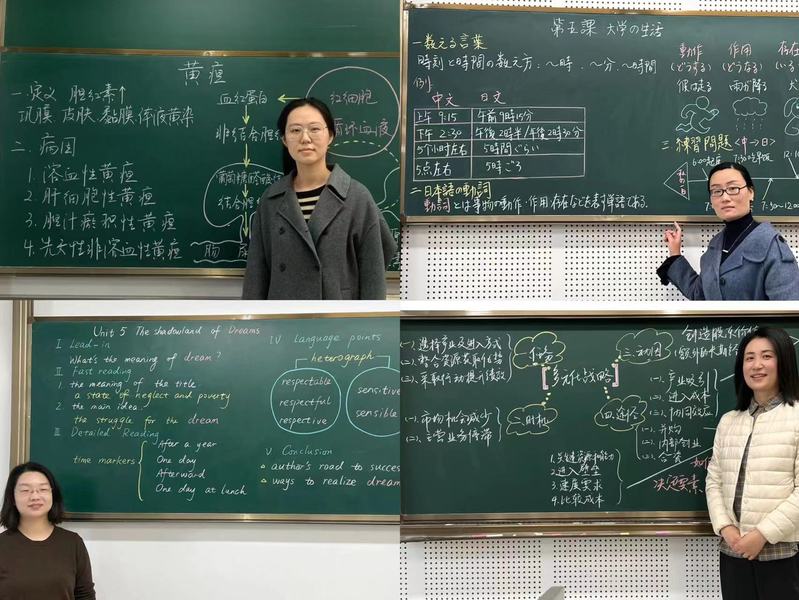 黄疸
一.定义 胆红素↑
巩膜.皮肤.黏膜.体液黄染
二.病因
1.溶血性黄疸
2.肝细胞性黄疸
3.胆汁瘀积性黄疸
4.先天性非溶血性黄疸
血红蛋白
红细胞
循环血液
非结合胆红
葡萄糖醛酸
结合胆
肠
第五課 大学の生活
一数える言葉
時刻と時間の数え方:~時.~分.~時間
例:
中文 日文
上午9:15 午前9時15分
下午2:30 午後2時半/午後2時30分
5个小时左右 5時間ぐらい
5点左右 5時ごろ
二日本語の動詞
動詞とは事物の動作·作用·存在などを表す単語である.
動作 作用 存在
(どうする) (どうなる) (いる
雨が降る
三練習問題<中→日>
6:00起床 7:30吃早饭 12:10
7:30~12:00
Unit 5 The shadowland of Dreams
I Lead-in
What's the meaning of dream?
II Fast reading
1. the meaning of the title
a state of neglect and poverty
2. the main idea
the struggle for the dream
III Detailed Reading
time markers
After a year
One day
Afterward
One day at lunch
IV Language points
heterograph
respectable
respectful
respective
sensitive
sensible
V Conclusion
△ author's road to succes
△ ways to realize dream
(一).选择产业及进入方式
(二).整合资源获取优势
(三).采取行动提升绩效
多元化战略
二.时机
(一).市场机会减少
(二).主营业务停滞
三.动因
创造股东价值
(一).产业吸引
(二).进入成本
(三).协同效应
四.途径
(一).并购
(二).内部创业
(三).合资
2.进入壁垒
3.速度要求
4.比较成本
决定要素